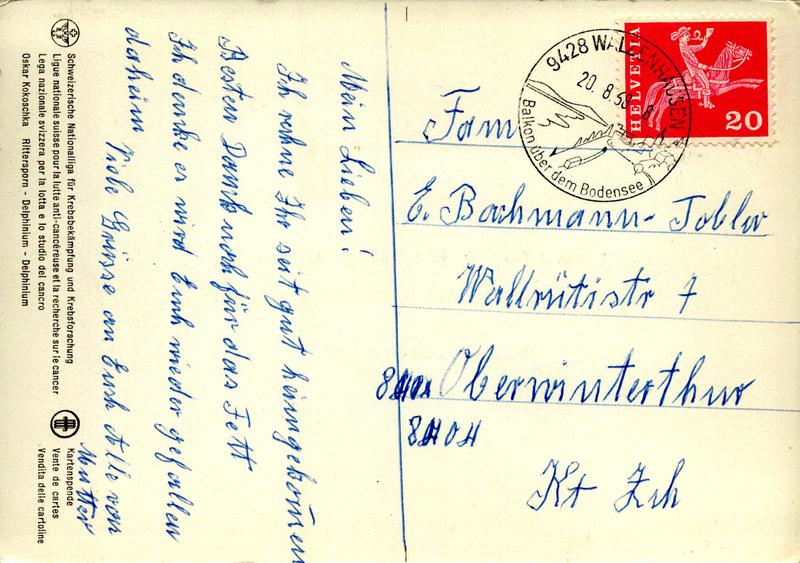 Mein Lieben!
Ich nehme Ihr seit gut heimgekommen
Besten Dank noch für das Fett
Ich denke es wird Euch wieder gefallen
daheim Viele Grüsse an Euch Alle von
Mutter
Schweizerische Nationalliga für Krebsbekämpfung und Krebsforschung
Ligue nationale suisse pour la lutte anti-cancéreuse et la recherche sur le cancer
Lega nazionale svizzera per la lotta e lo studio del cancro
Oskar Kokoschka Rittersporn - Delphinium - Delphinium
Kartenspende
Vente de cartes
Vendita delle cartoline
9428 WALZENHAUSEN
20. 8. 8
Balkon über dem Bodensee
HELVETIA
20
Fam
E. Bachmann-Tobler
Wallrütistr 7
Oberwinterthur
8404
Kt Zch